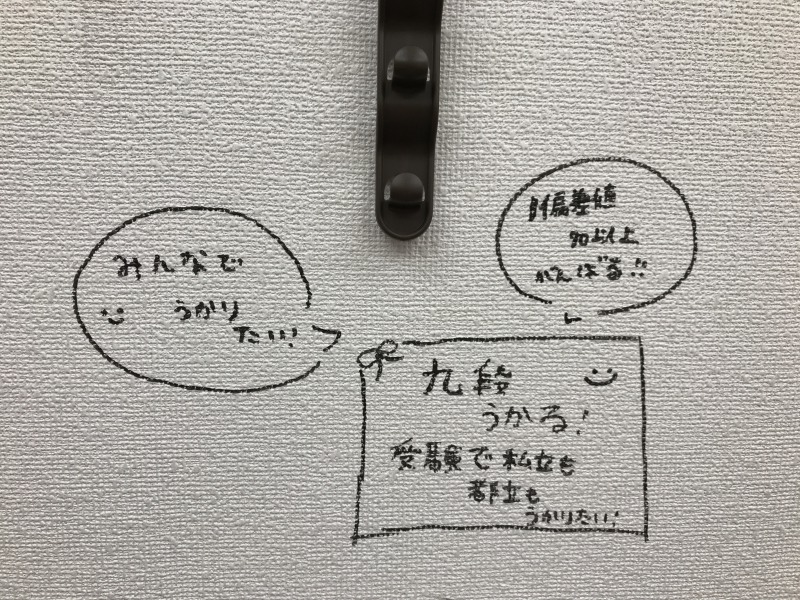 みんなで
うかり
たい!
偏差値
70以上
がんばる!!
九段
うかる!
受験で私立も
都立も
うかりたい!